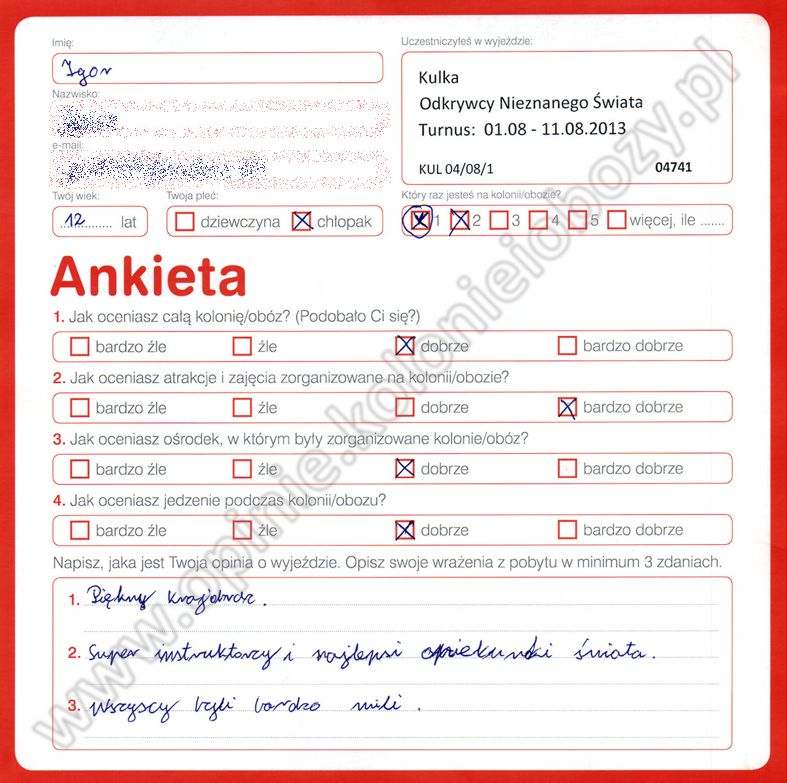 Imię:
Igor
Uczestniczyłeś w wyjeździe:
Kulka
Odkrywcy Nieznanego Świata
Turnus: 01.08 - 11.08.2013
KUL 04/08/1 04741
Nazwisko:
e-mail:
Twój wiek:
12 lat
Twoja płeć:
dziewczyna chłopak
Który raz jesteś na kolonii/obozie?
1 2 3 4 5 więcej, ile .......
Ankieta
1. Jak oceniasz całą kolonię/obóz? (Podobało Ci się?)
bardzo źle źle dobrze bardzo dobrze
2. Jak oceniasz atrakcje i zajęcia zorganizowane na kolonii/obozie?
bardzo źle źle dobrze bardzo dobrze
3. Jak oceniasz ośrodek, w którym były zorganizowane kolonie/obóz?
bardzo źle źle dobrze bardzo dobrze
4. Jak oceniasz jedzenie podczas kolonii/obozu?
bardzo źle źle dobrze bardzo dobrze
Napisz, jaka jest Twoja opinia o wyjeździe. Opisz swoje wrażenia z pobytu w minimum 3 zdaniach.
1. Piękny krajobraz.
2. Super instruktorzy i najlepsi opiekunki świata.
3. Wszyscy byli bardzo mili.
www.opinie.kolonieiobozy.pl